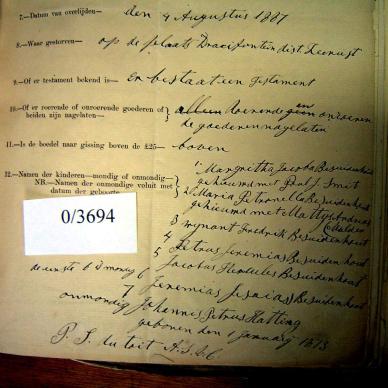 7.—Datum van overlijden— den 9 Augustus 1887
8.—Waar gestorven— op de plaats Draaifontein dist Zeerust
9.—Of er testament bekend is— En bestaat een Testament
10.—Of er roerende of onroerende goederen of beiden zijn nagelaten— alleen Roerende geen en onroerende goederen nagelaten
11.—Is de boedel naar gissing boven de £25— boven
12.—Namen der kinderen—mondig of onmondig—
NB.—Namen der onmondige voluit met datum der geboorte
1. Margritha Jacoba Besuidenhout
gehieuwd met Paul J. Smit
2. Maria Petronella Besuidenhout
gehieuwd met
3 Wynant Fredrik Besuidenhout
4 Petrus Jeremias Besuidenhout
5 Jacobus Hercules Besuidenhout
de eerste 6 mondig 6 Jeremias Jesaias Besuidenhout
onmondig 7 Johannes Petrus Hatting
geboren den 1 January 1873
P. S. du toit
0/3694